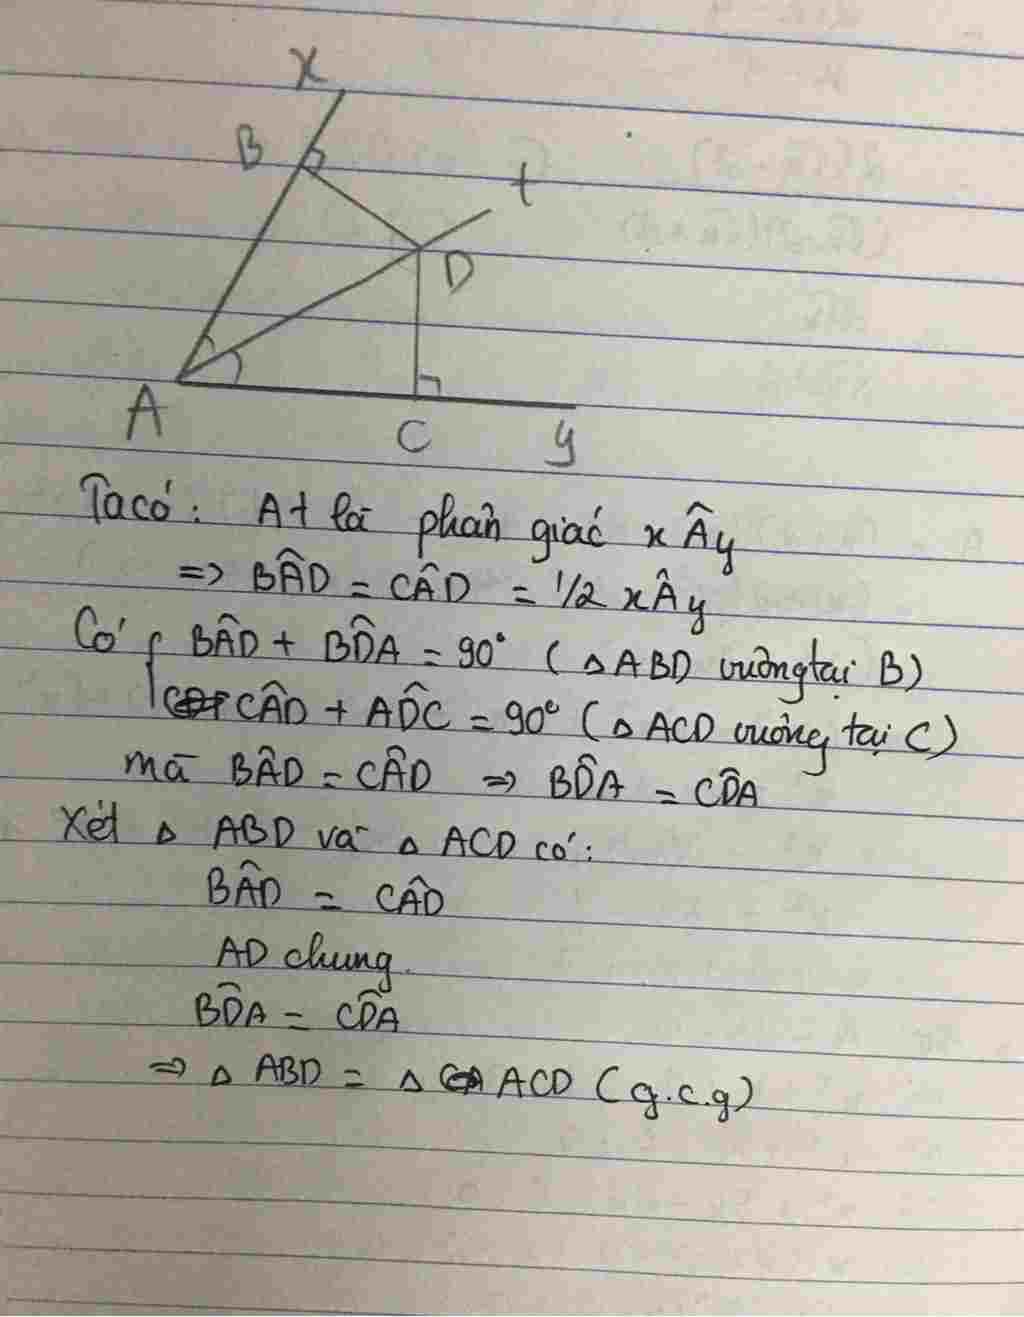 x
B
t
D
A
C
y
Ta có: At là phân giác xÂy
=> BÂD = CÂD = 1/2 xÂy
Có { BÂD + BD̂A = 90° (△ABD vuông tại B)
CÂD + AD̂C = 90° (△ ACD vuông tại C)
mà BÂD = CÂD => BD̂A = CD̂A
Xét △ ABD và △ ACD có:
BÂD = CÂD
AD chung.
BD̂A = CD̂A
=> △ ABD = △ ACD (g.c.g)